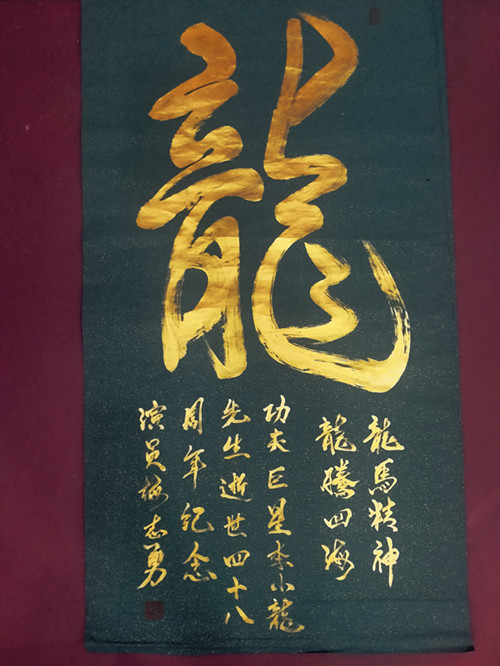 龍
龍馬精神
龍騰四海
功夫巨星李小龍
先生逝世四十八
周年纪念
演员梅志勇